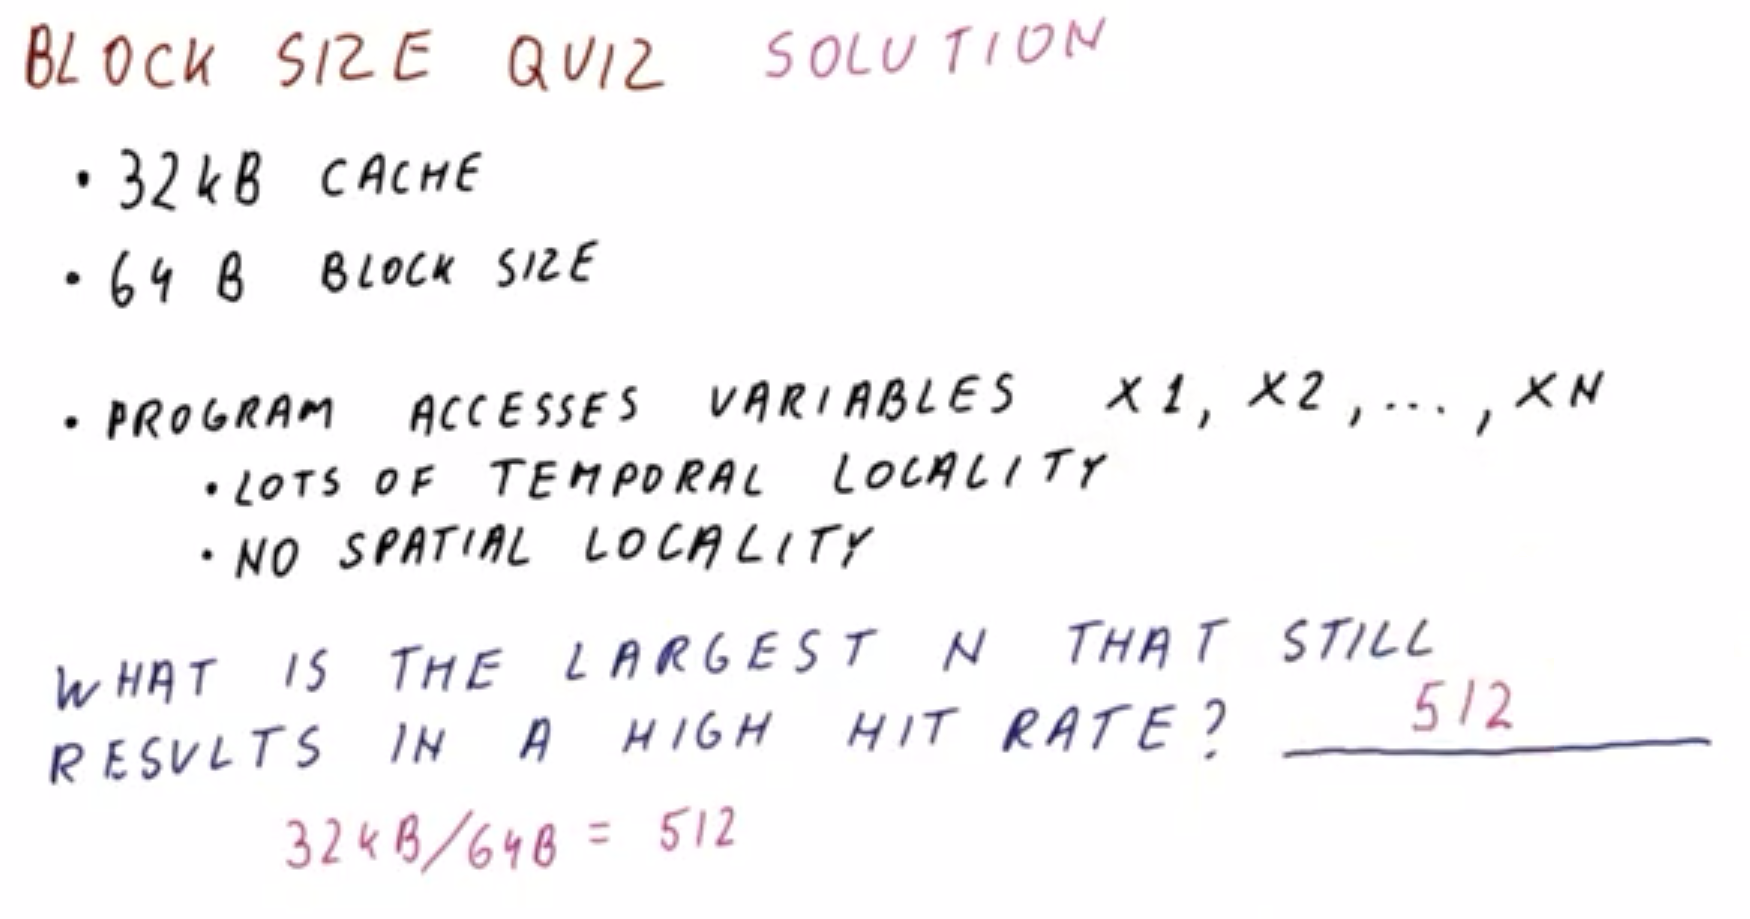 BLOCK SIZE QUIZ SOLUTION
• 32kB CACHE
• 64 B BLOCK SIZE
• PROGRAM ACCESSES VARIABLES X1, X2, ..., XN
• LOTS OF TEMPORAL LOCALITY
• NO SPATIAL LOCALITY
WHAT IS THE LARGEST N THAT STILL
RESULTS IN A HIGH HIT RATE? 512
32kB/64B = 512